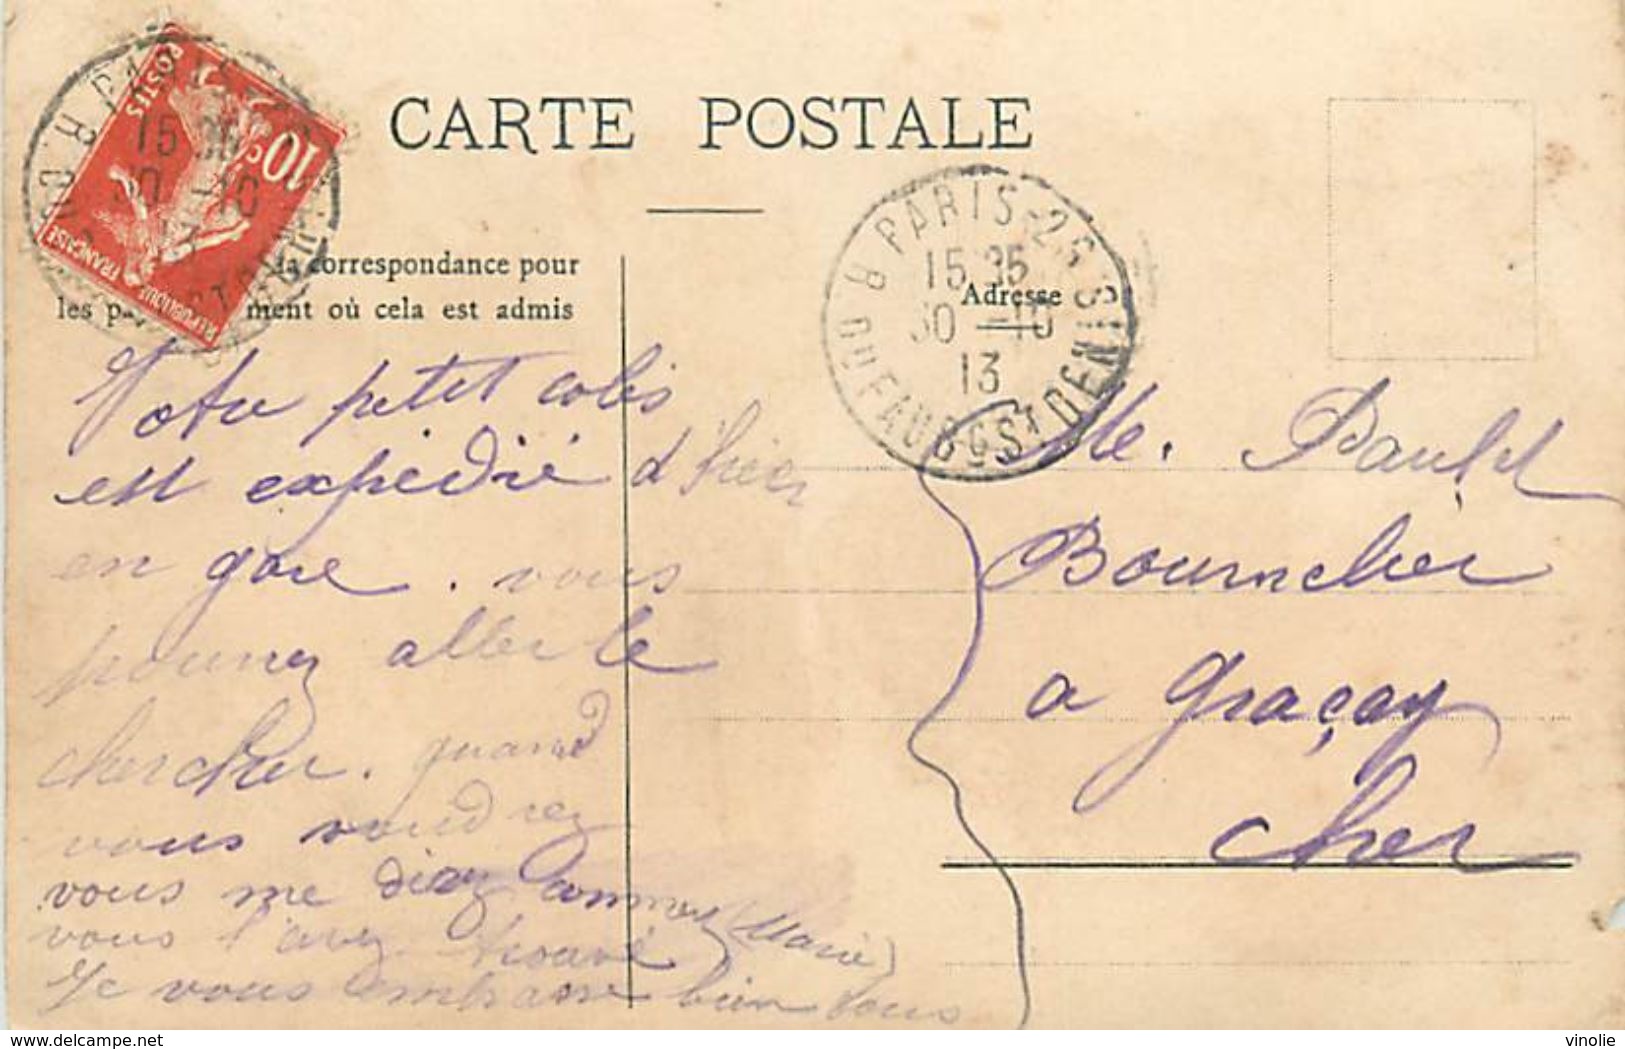 CARTE POSTALE
la correspondance pour
les ment où cela est admis
Adresse
10c
POSTES
REPUBLIQUE FRANÇAISE
PARIS
15 35
30 -10
13
PARIS-26
15 35
30 -10
13
R. DU FAUBG ST DENIS
Votre petit colis
est expedié d'hier
en gare. vous
pourrez aller le
chercher. quand
vous voudrez
vous me direz comment
vous l'avez trouvé
Je vous embrasse bien tous
Marie
Me.
a Graçay
Cher
www.delcampe.net
vinolie